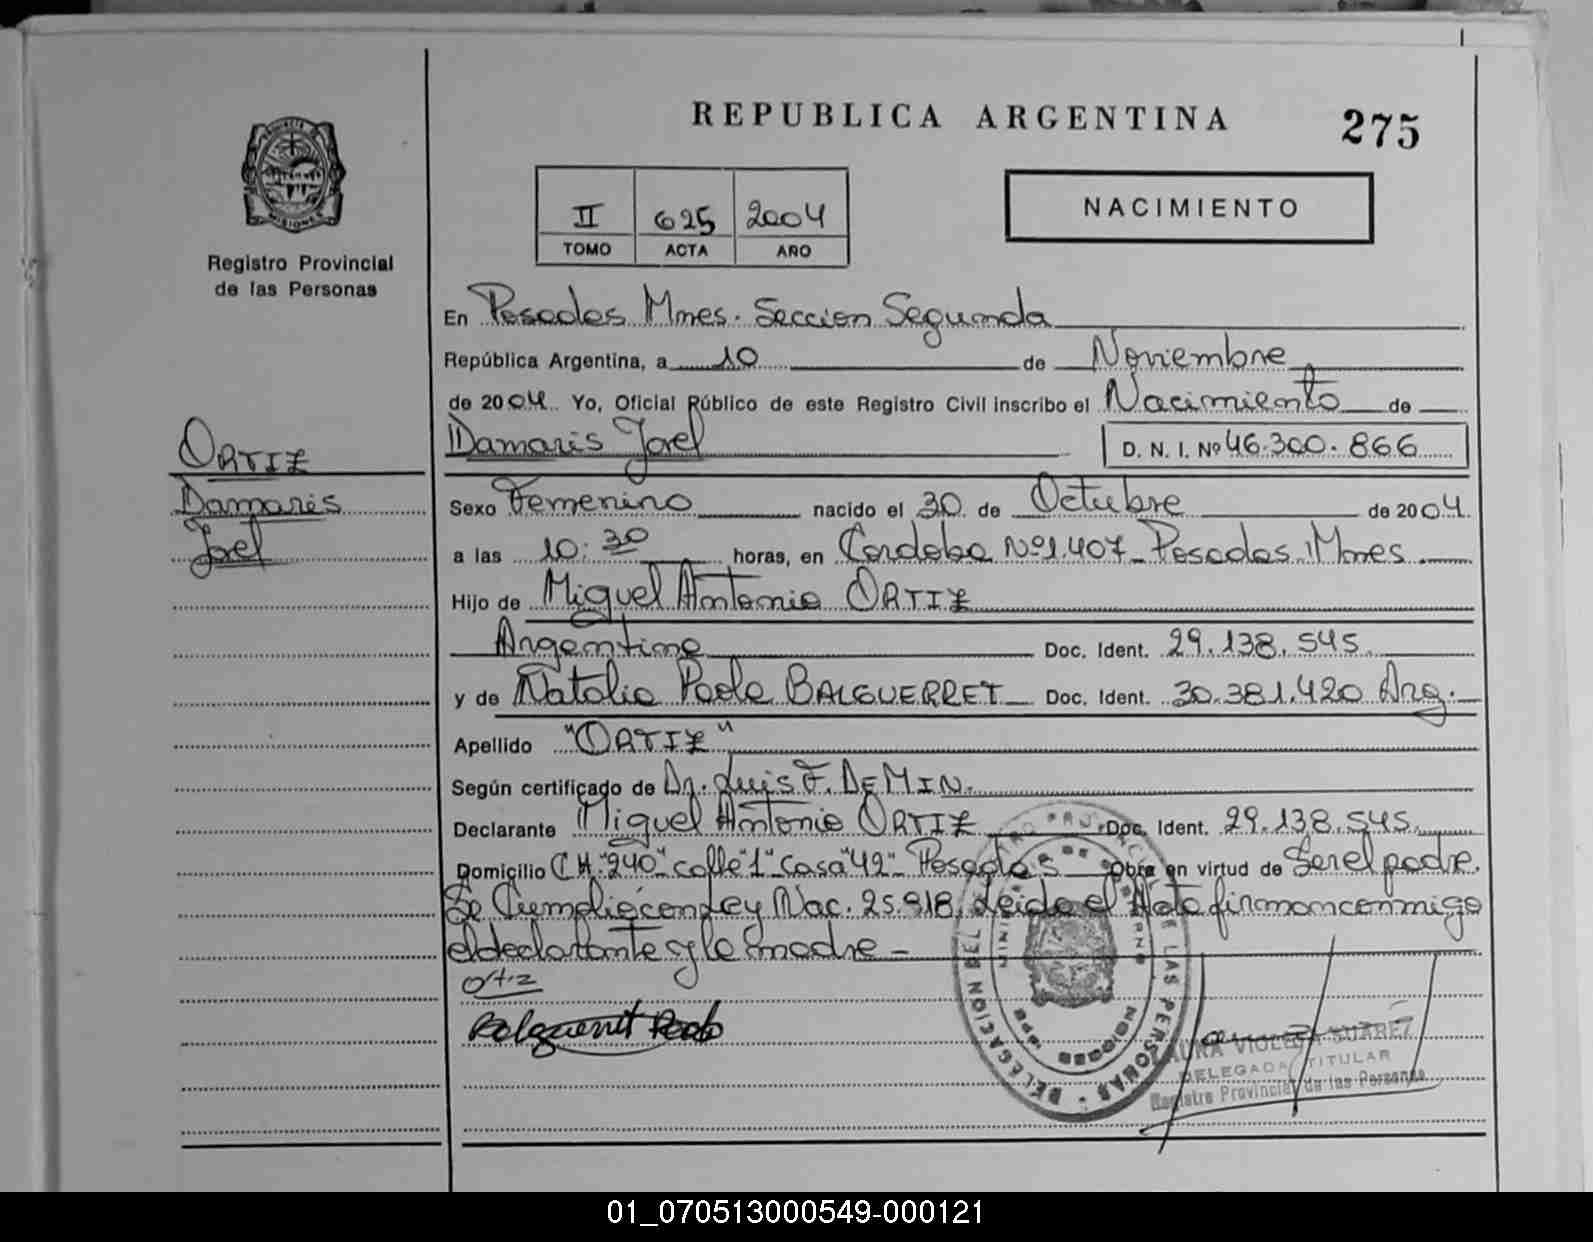 REPUBLICA ARGENTINA
275
II 625 2004
TOMO ACTA AÑO
NACIMIENTO
PROVINCIA DE
MISIONES
Registro Provincial
de las Personas
En Posadas Mnes. Seccion Segunda
República Argentina, a 10 de Noviembre
de 2004 Yo, Oficial Público de este Registro Civil inscribo el Nacimiento de
Damaris Joel
D. N. I. Nº 46.300.866
ORTIZ
Damaris
Joel
Sexo Femenino nacido el 30 de Octubre de 2004
a las 10:30 horas, en Cordoba Nº1.407_ Posadas Mnes
Hijo de Miguel Antonio ORTIZ
Argentino Doc. Ident. 29.138.545
y de Natalia Paola BALGUERRET Doc. Ident. 30.381.420 Arg.
Apellido "ORTIZ"
Según certificado de Dr. Luis F. DEMIN.
Declarante Miguel Antonio ORTIZ Doc. Ident. 29.138.545
Domicilio CH."240" calle "1" casa "42"- Posadas Obra en virtud de Ser el padre.
Se Cumplió con Ley Nac. 25.918. Leida el Acta firman conmigo
el declarante y la madre -
Ortiz
Balguerret Paola
DELEGACION DEL REGISTRO PROVINCIAL DE LAS PERSONAS
MINISTERIO DE GOBIERNO
MISIONES
LAURA VIOLETA SUAREZ
DELEGADA TITULAR
Registro Provincial de las Personas
01_070513000549-000121